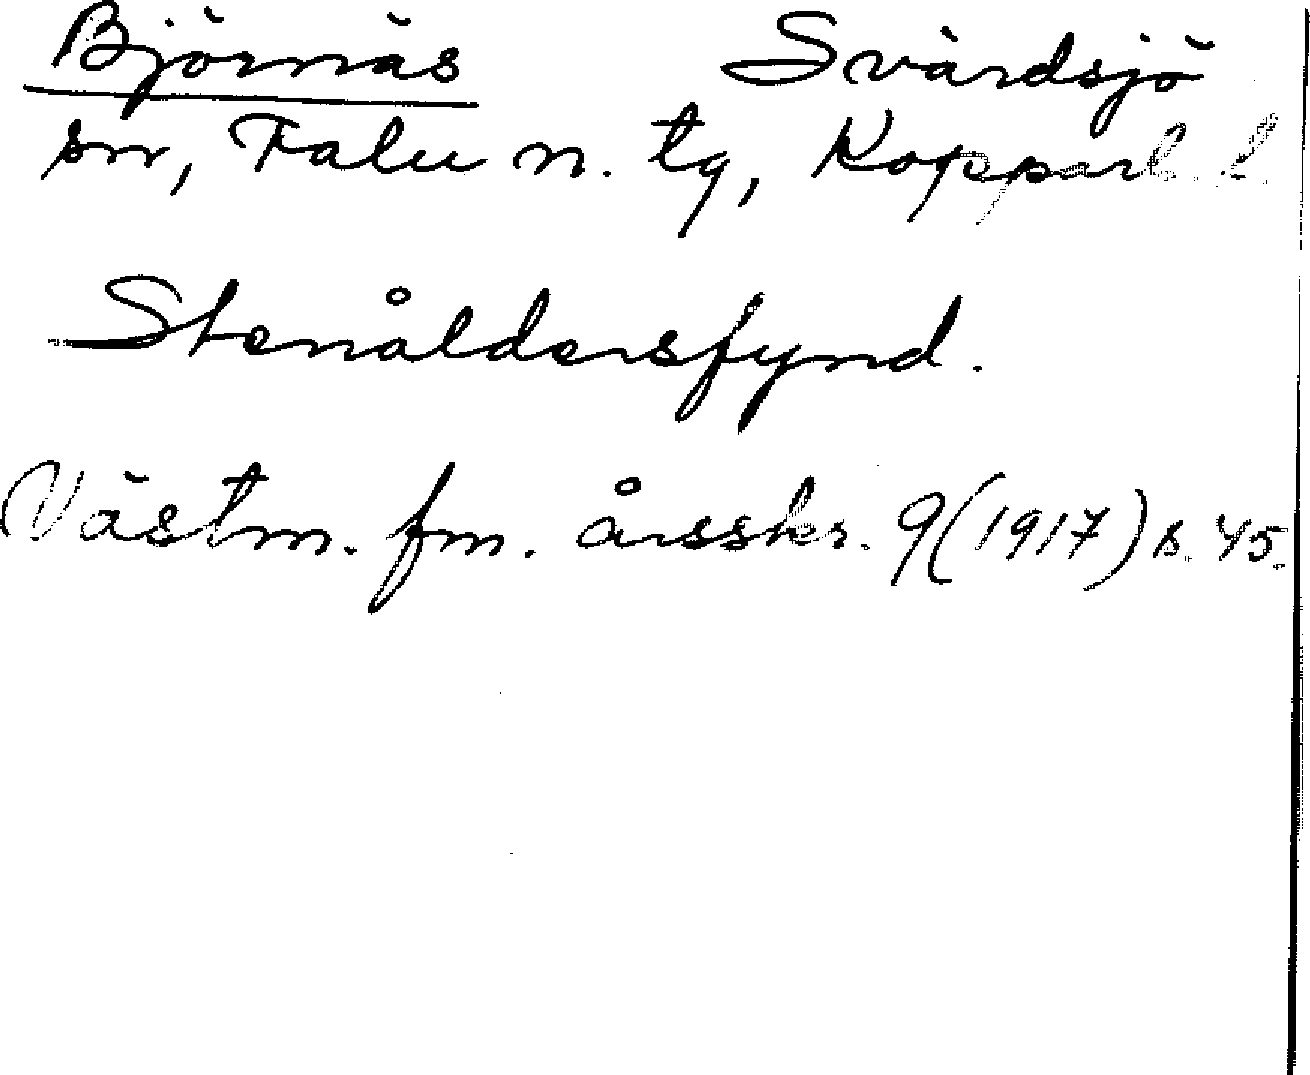 Björnäs Svärdsjö
sn, Falu n. tg, Kopparb. l.
Stenåldersfynd.
Västm. fm. årsskr. 9 (1917) s. 45.